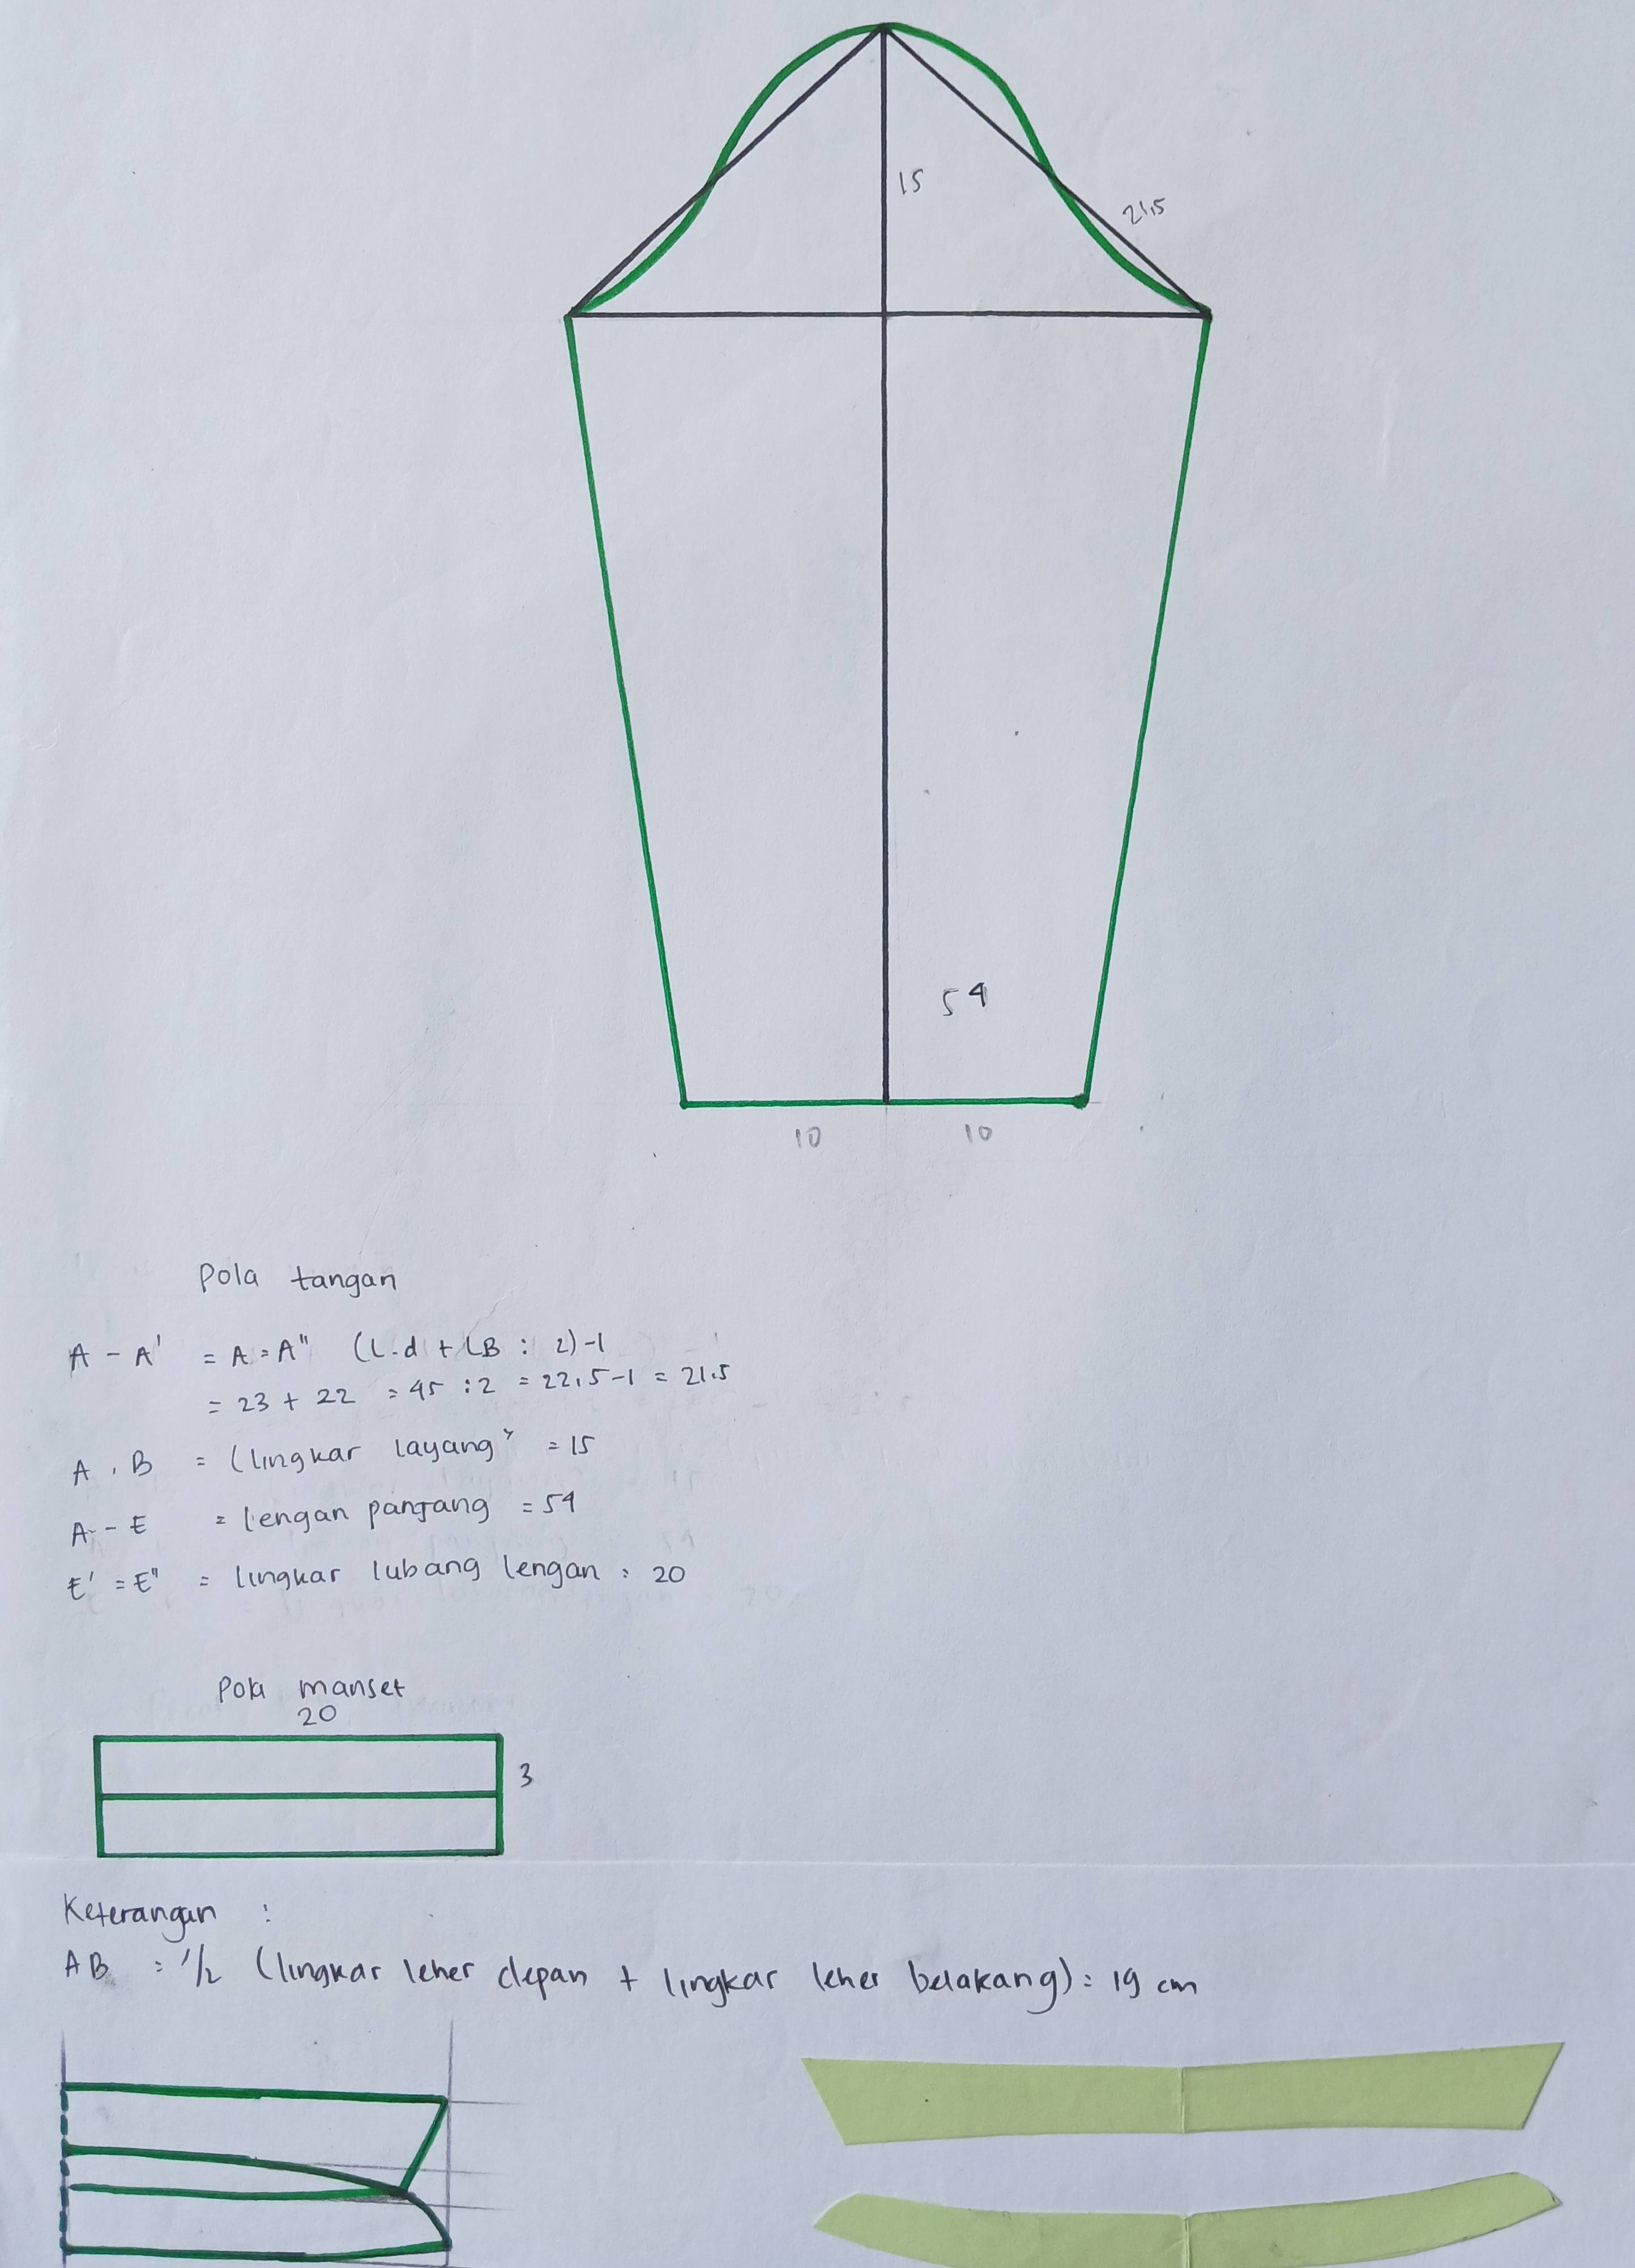 15
21,5
54
10 10
Pola tangan
A - A' = A = A" (L.d + LB : 2)-1
= 23 + 22 = 45 : 2 = 22,5-1 = 21.5
A . B = (lingkar layang² = 15
A - E = lengan panjang = 54
E' = E" = lingkar lubang lengan : 20
Pola manset
20
3
Keterangan :
AB : 1/2 (lingkar leher depan + lingkar leher belakang) = 19 cm